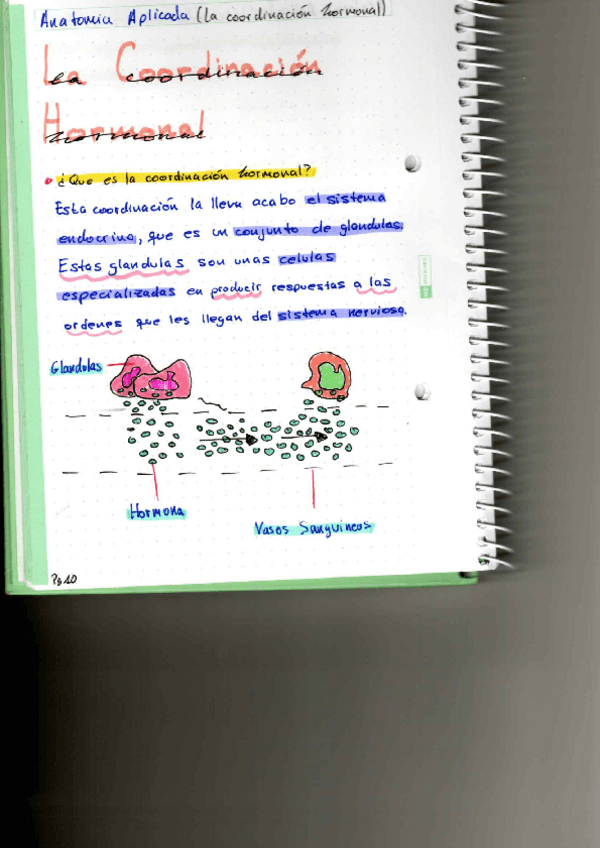 Anatomia Aplicada (La coordinación hormonal)
La Coordinación
Hormonal
¿Que es la coordinación hormonal?
Esta coordinación la lleva acabo el sistema
endocrino, que es un conjunto de glandulas.
Estas glandulas son unas celulas
especializadas en producir respuestas a las
ordenes que les llegan del sistema nervioso.
Glandulas
Hormona
Vasos Sanguineos
Pg 10